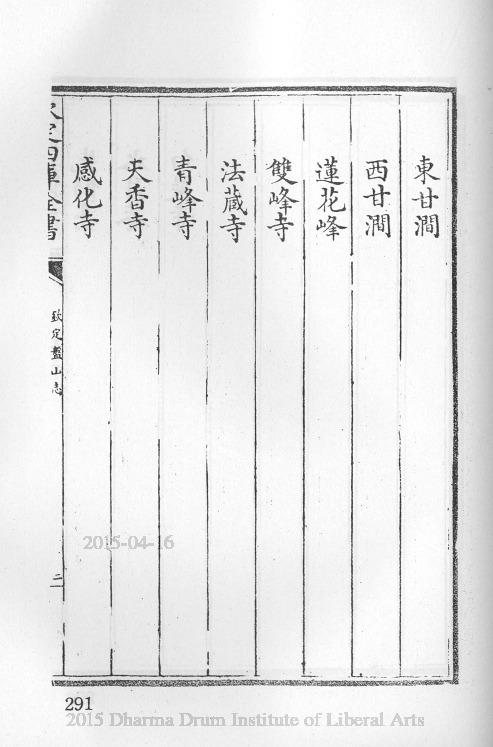 東甘澗
西甘澗
蓮花峰
雙峰寺
法藏寺
青峰寺
天香寺
感化寺
欽定四庫全書
欽定盤山志
二
2015-04-16
291
2015 Dharma Drum Institute of Liberal Arts